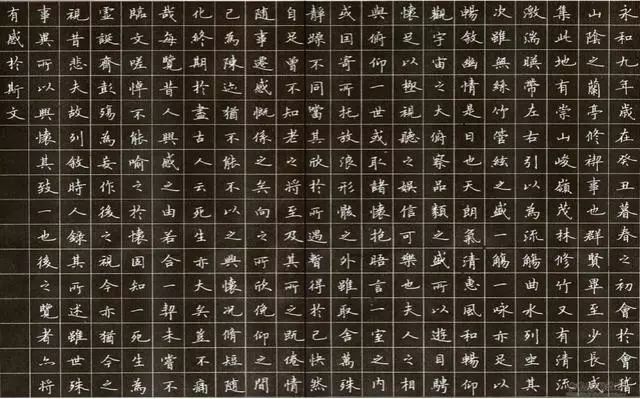 永和九年歲在癸丑暮春之初會於會稽
山陰之蘭亭修禊事也群賢畢至少長咸
集此地有崇山峻嶺茂林修竹又有清流
激湍暎帶左右引以為流觴曲水列坐其
次雖無絲竹管絃之盛一觴一詠亦足以
暢敘幽情是日也天朗氣清惠風和暢仰
觀宇宙之大俯察品類之盛所以遊目騁
懷足以極視聽之娛信可樂也夫人之相
與俯仰一世或取諸懷抱晤言一室之內
或因寄所托放浪形骸之外雖取舍萬殊
靜躁不同當其欣於所遇暫得於己快然
自足曾不知老之將至及其所之既倦情
隨事遷感慨係之矣向之所欣俛仰之間
已為陳迹猶不能不以之興懷況脩短隨
化終期於盡古人云死生亦大矣豈不痛
哉每覽昔人興感之由若合一契未嘗不
臨文嗟悼不能喻之於懷固知一死生為
虛誕齊彭殤為妄作後之視今亦猶今之
視昔悲夫故列敘時人錄其所述雖世殊
事異所以興懷其致一也後之覽者亦將
有感於斯文